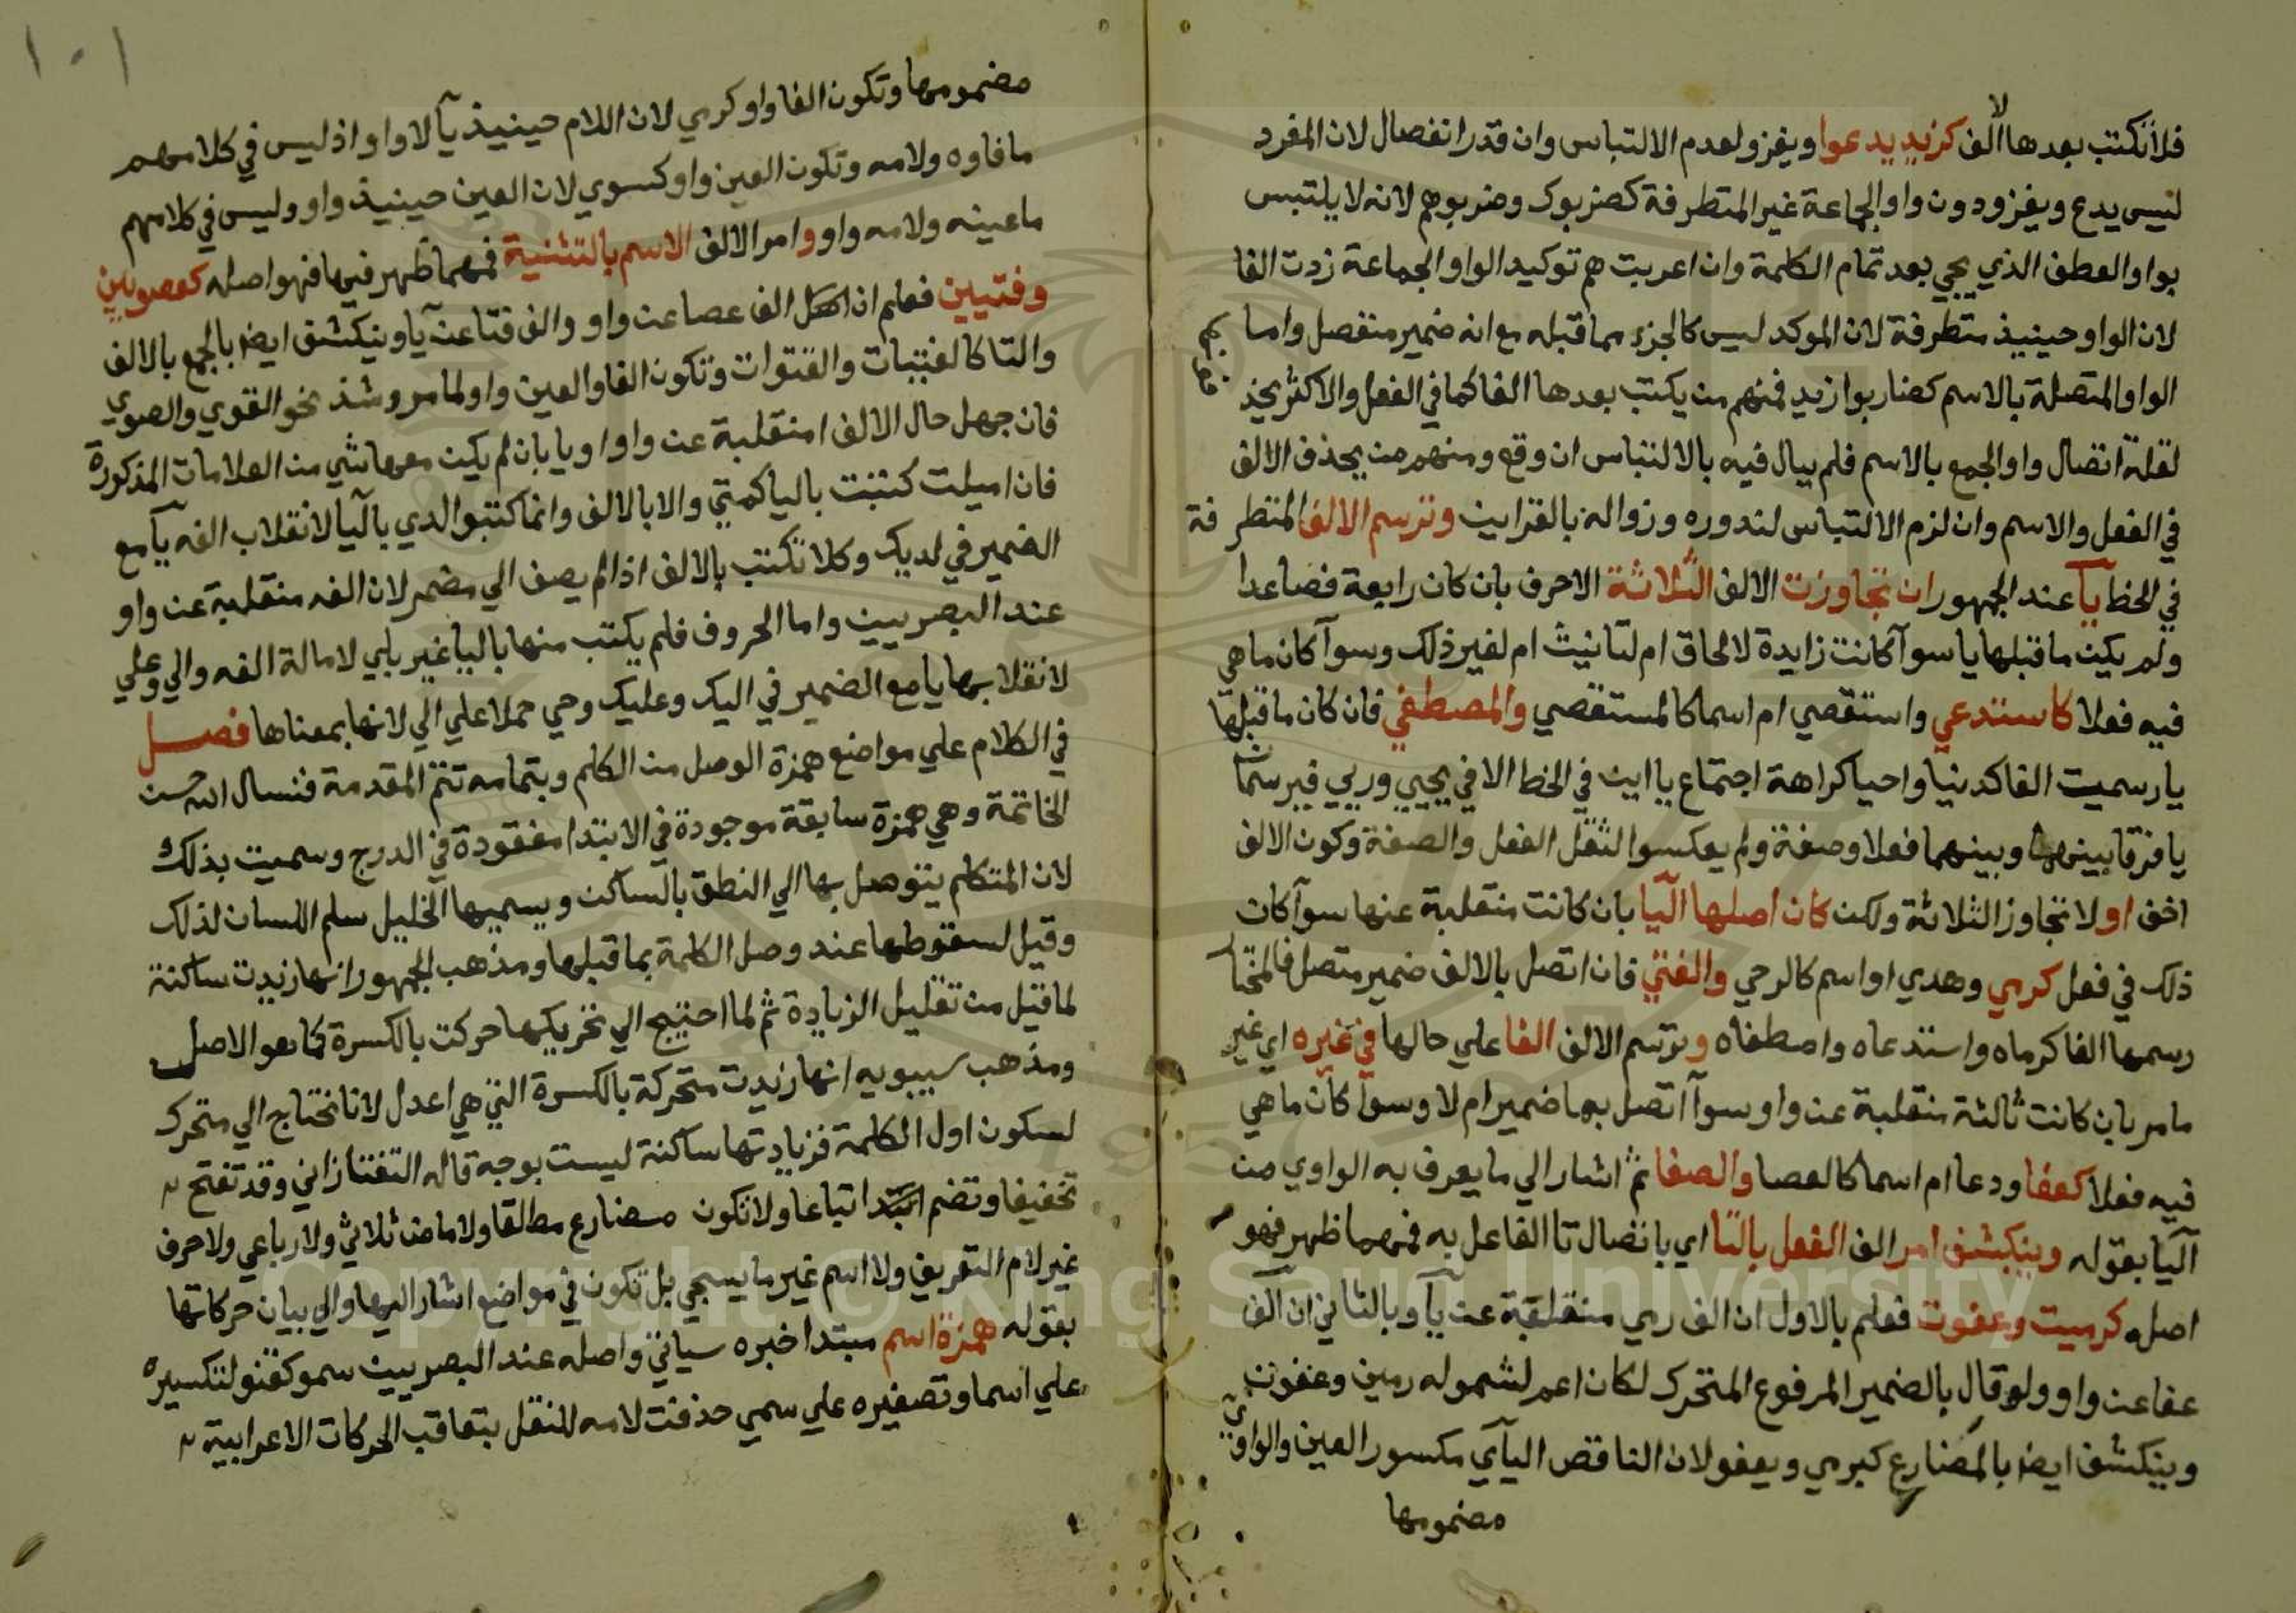 فلا تكتب بعدها الف كزيد يدعوا ويغزو لعدم الالتباس وان قدر انفصال لان المفرد
ليس يدع ويغزو دون واو الجماعة غير المتطرفة كضربوك وضربوهم لانه لا يلتبس
بواو العطف الذي يجي بعد تمام الكلمة وان اعربت هم توكيد الواو الجماعة زدت الفا
لان الواو حينيذ متطرفة لان الموكد ليس كالجزء مما قبله مع انه ضمير منفصل واما
الواو المتصلة بالاسم كضاربوا زيد فمنهم من يكتب بعدها الفا كما في الفعل والاكثر يحذف
لقلة اتصال واو الجمع بالاسم فلم يبال فيه بالالتباس ان وقع ومنهم من يحذف الالف
في الفعل والاسم وان لزم الالتباس لندوره وزواله بالقراين وترسم الالف المتطرفة
في الخط يآ عند الجمهور ان تجاوزت الالف الثلاثة الاحرف بان كان رابعة فصاعدا
ولم يكن ما قبلها يا سوآ كانت زايدة لالحاق ام لتانيث ام لغير ذلك وسوآ كان ما هي
فيه فعلا كاستدعي واستقصي ام اسما كالمستقصي والمصطفي فان كان ما قبلها
يا رسميت الفا كدنيا واحيا كراهة اجتماع ياآين في الخط الا في يحيي وريي فيرسمان
يا فرقا بينهما وبينهما فعلا وصفة ولم يعكسوا لثقل الفعل والصفة وكون الالف
اخف او لا تجاوز الثلاثة ولكن كان اصلها اليا بان كانت منقلبة عنها سوآ كان
ذلك في فعل كرمي وهدي او اسم كالرحي والفتي فان اتصل بالالف ضمير متصل فالمختار
رسمها الفا كرماه واستدعاه واصطفاه وترسم الالف الفا علي حالها في غيره اي غير
ما مر بان كانت ثالثة منقلبة عن واو سوآ اتصل بها ضمير ام لا وسوآ كان ما هي
فيه فعلا كعفا ودعا ام اسما كالعصا والصفا ثم اشار الي ما يعرف به الواوي من
اليآ بقوله وينكشف امر الف الفعل بالتا اي باتصال تا الفاعل به فمهما ظهر فهو
اصله كرميت وعفوت فعلم بالاول ان الف رمي منقلبة عن يآ وبالثاني ان الف
عفا عن واو ولو قال بالضمير المرفوع المتحرك لكان اعم لشموله رمين وعفون
وينكشف ايضا بالمضارع كيرمي ويعفو لان الناقص اليآي مكسور العين والواوي
مضمومها
١٠١
مضمومها وتكون الفا واو كرمي لان اللام حينيذ يآ لا واو اذ ليس في كلامهم
ما فاوه ولامه وتكون العين واو كسوي لان العين حينيذ واو وليس في كلامهم
ما عينه ولامه واو وامر الالف الاسم بالتثنية فمهما ظهر فيها فهو اصله كعصوين
وفتيين فعلم ان اصل الف عصا عن واو والف فتا عن يآ وينكشف ايضا بالجمع بالالف
والتا كالفتيات والقنوات وتكون الفا والعين واو لما مر وشذ نحو القوي والصوي
فان جهل حال الالف امنقلبة عن واو او يا بان لم يكن معها شي من العلامات المذكورة
فان اميلت كتبت باليا كمتي والا بالالف وانما كتبوا لدي باليآ لانقلاب الفه يآ مع
الضمير في لديك وكلا تكتب بالالف اذا لم يضف الي مضمر لان الفه منقلبة عن واو
عند البصريين واما الحروف فلم يكتب منها باليا غير بلي لامالة الفه والي وعلي
لانقلابها يا مع الضمير في اليك وعليك وحي حملا علي الي لانها بمعناها فصل
في الكلام علي مواضع همزة الوصل من الكلم وبتمامه تتم المقدمة فنسال الله حسن
الخاتمة وهي همزة سابقة موجودة في الابتدا مفقودة في الدرج وسميت بذلك
لان المتكلم يتوصل بها الي النطق بالساكن ويسميها الخليل سلم اللسان لذلك
وقيل لسقوطها عند وصل الكلمة بما قبلها ومذهب الجمهور انها زيدت ساكنة
لما قيل من تقليل الزيادة ثم لما احتيج الي تحريكها حركت بالكسرة كما هو الاصل
ومذهب سيبويه انها زيدت متحركة بالكسرة التي هي اعدل لانا نحتاج الي متحرك
لسكون اول الكلمة فزيادتها ساكنة ليست بوجه قاله التفتازاني وقد تفتح
تخفيفا وتضم اتباعا ولا تكون مضارع مطلقا ولا ماض ثلاثي ولا رباعي ولا حرف
غير لام التعريف ولا اسم غير ما يسجي بل تكون في مواضع اشار اليها والي بيان حركاتها
بقوله همزة اسم مبتدا خبره سياتي واصله عند البصريين سمو كقنو لتكسيره
علي اسما وتصغيره علي سمي حذفت لامه للثقل بتعاقب الحركات الاعرابية
Copyright © King Saud University
1957